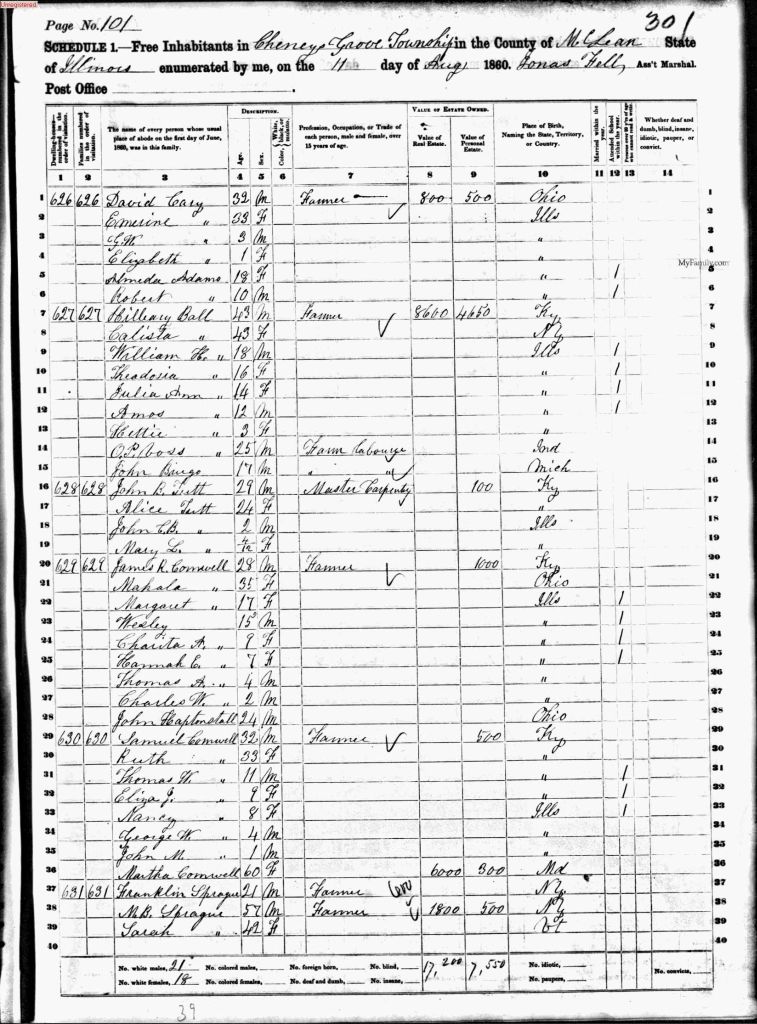 Unregistered.
Page No. 101
301
SCHEDULE 1.—Free Inhabitants in Cheneys Grove Township in the County of McLean State
of Illinois enumerated by me, on the 11 day of Aug. 1860. Jonas Fell, Ass't Marshal.
Post Office
Dwelling-houses—numbered in the order of visitation. Families numbered in the order of visitation. The name of every person whose usual place of abode on the first day of June, 1860, was in this family. DESCRIPTION. Age. Sex. Color, White, black, or mulatto. Profession, Occupation, or Trade of each person, male and female, over 15 years of age. VALUE OF ESTATE OWNED. Value of Real Estate. Value of Personal Estate. Place of Birth, Naming the State, Territory, or Country. Married within the year. Attended School within the year. Persons over 20 y'rs of age who cannot read & write. Whether deaf and dumb, blind, insane, idiotic, pauper, or convict.
1 2 3 4 5 6 7 8 9 10 11 12 13 14
1 626 626 David Cary 32 M Farmer 800 500 Ohio 1
2 Emerine " 33 F Ills 2
3 G.W. " 3 M " 3
4 Elizabeth " 1 F " 4
MyFamily.com
5 Almeda Adams 18 F " / 5
6 Robert " 10 M " / 6
7 627 627 Hilleary Ball 43 M Farmer 8600 4650 Ky 7
8 Calista " 43 F NY 8
9 William H. " 18 M Ills / 9
10 Theodosia " 16 F " / 10
11 Julia Ann " 14 F " / 11
12 Amos " 12 M " / 12
13 Hettie " 3 F " 13
14 O.P. Voss " 25 M Farm Labourer Ind 14
15 John Bingo 17 M " " Mich 15
16 628 628 John B. Tutt 29 M Master Carpenter 100 Ky 16
17 Alice Tutt 24 F " 17
18 John C.B. " 2 M Ills 18
19 Mary L. " 4/12 F " 19
20 629 629 James R. Cornwell 28 M Farmer 1000 Ky 20
21 Mahala " 35 F Ohio 21
22 Margaret " 17 F Ills / 22
23 Wesley 15 M " / 23
24 Charita A. " 9 F " / 24
25 Hannah E. " 7 F " / 25
26 Thomas A. " 4 M " 26
27 Charles W. " 2 M " 27
28 John Haptonstall 24 M Ohio 28
29 630 630 Samuel Cornwell 32 M Farmer 500 Ky 29
30 Ruth " 33 F " 30
31 Thomas W. " 11 M " / 31
32 Eliza J. " 9 F " / 32
33 Nancy " 8 F Ills / 33
34 George W. " 4 M " 34
35 John M. " 1 M " 35
36 Martha Cornwell 60 F 6000 300 Md 36
37 631 631 Franklin Sprague 21 M Farmer 600 NY 37
38 M.B. Sprague 57 M Farmer 1800 500 NY 38
39 Sarah " 42 F Vt 39
40 40
No. white males, 21 No. colored males, No. foreign born, No. blind, 17,200 7,550 No. idiotic, No. convicts,
No. white females, 18 No. colored females, No. deaf and dumb, No. insane, No. paupers,
39